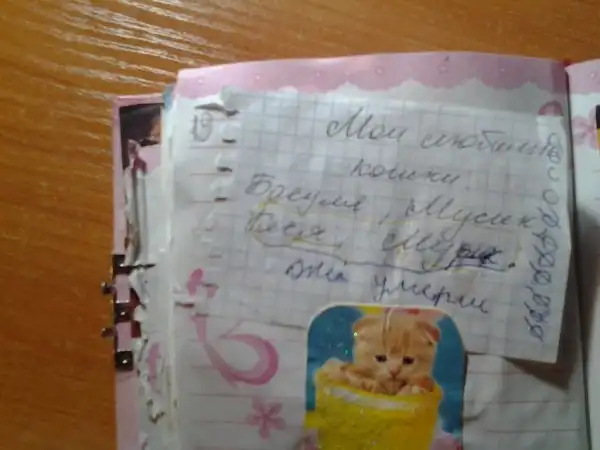 19
Мои любимые
кошки
Басуля, Мусик
Бася, Мурик.
они умерли